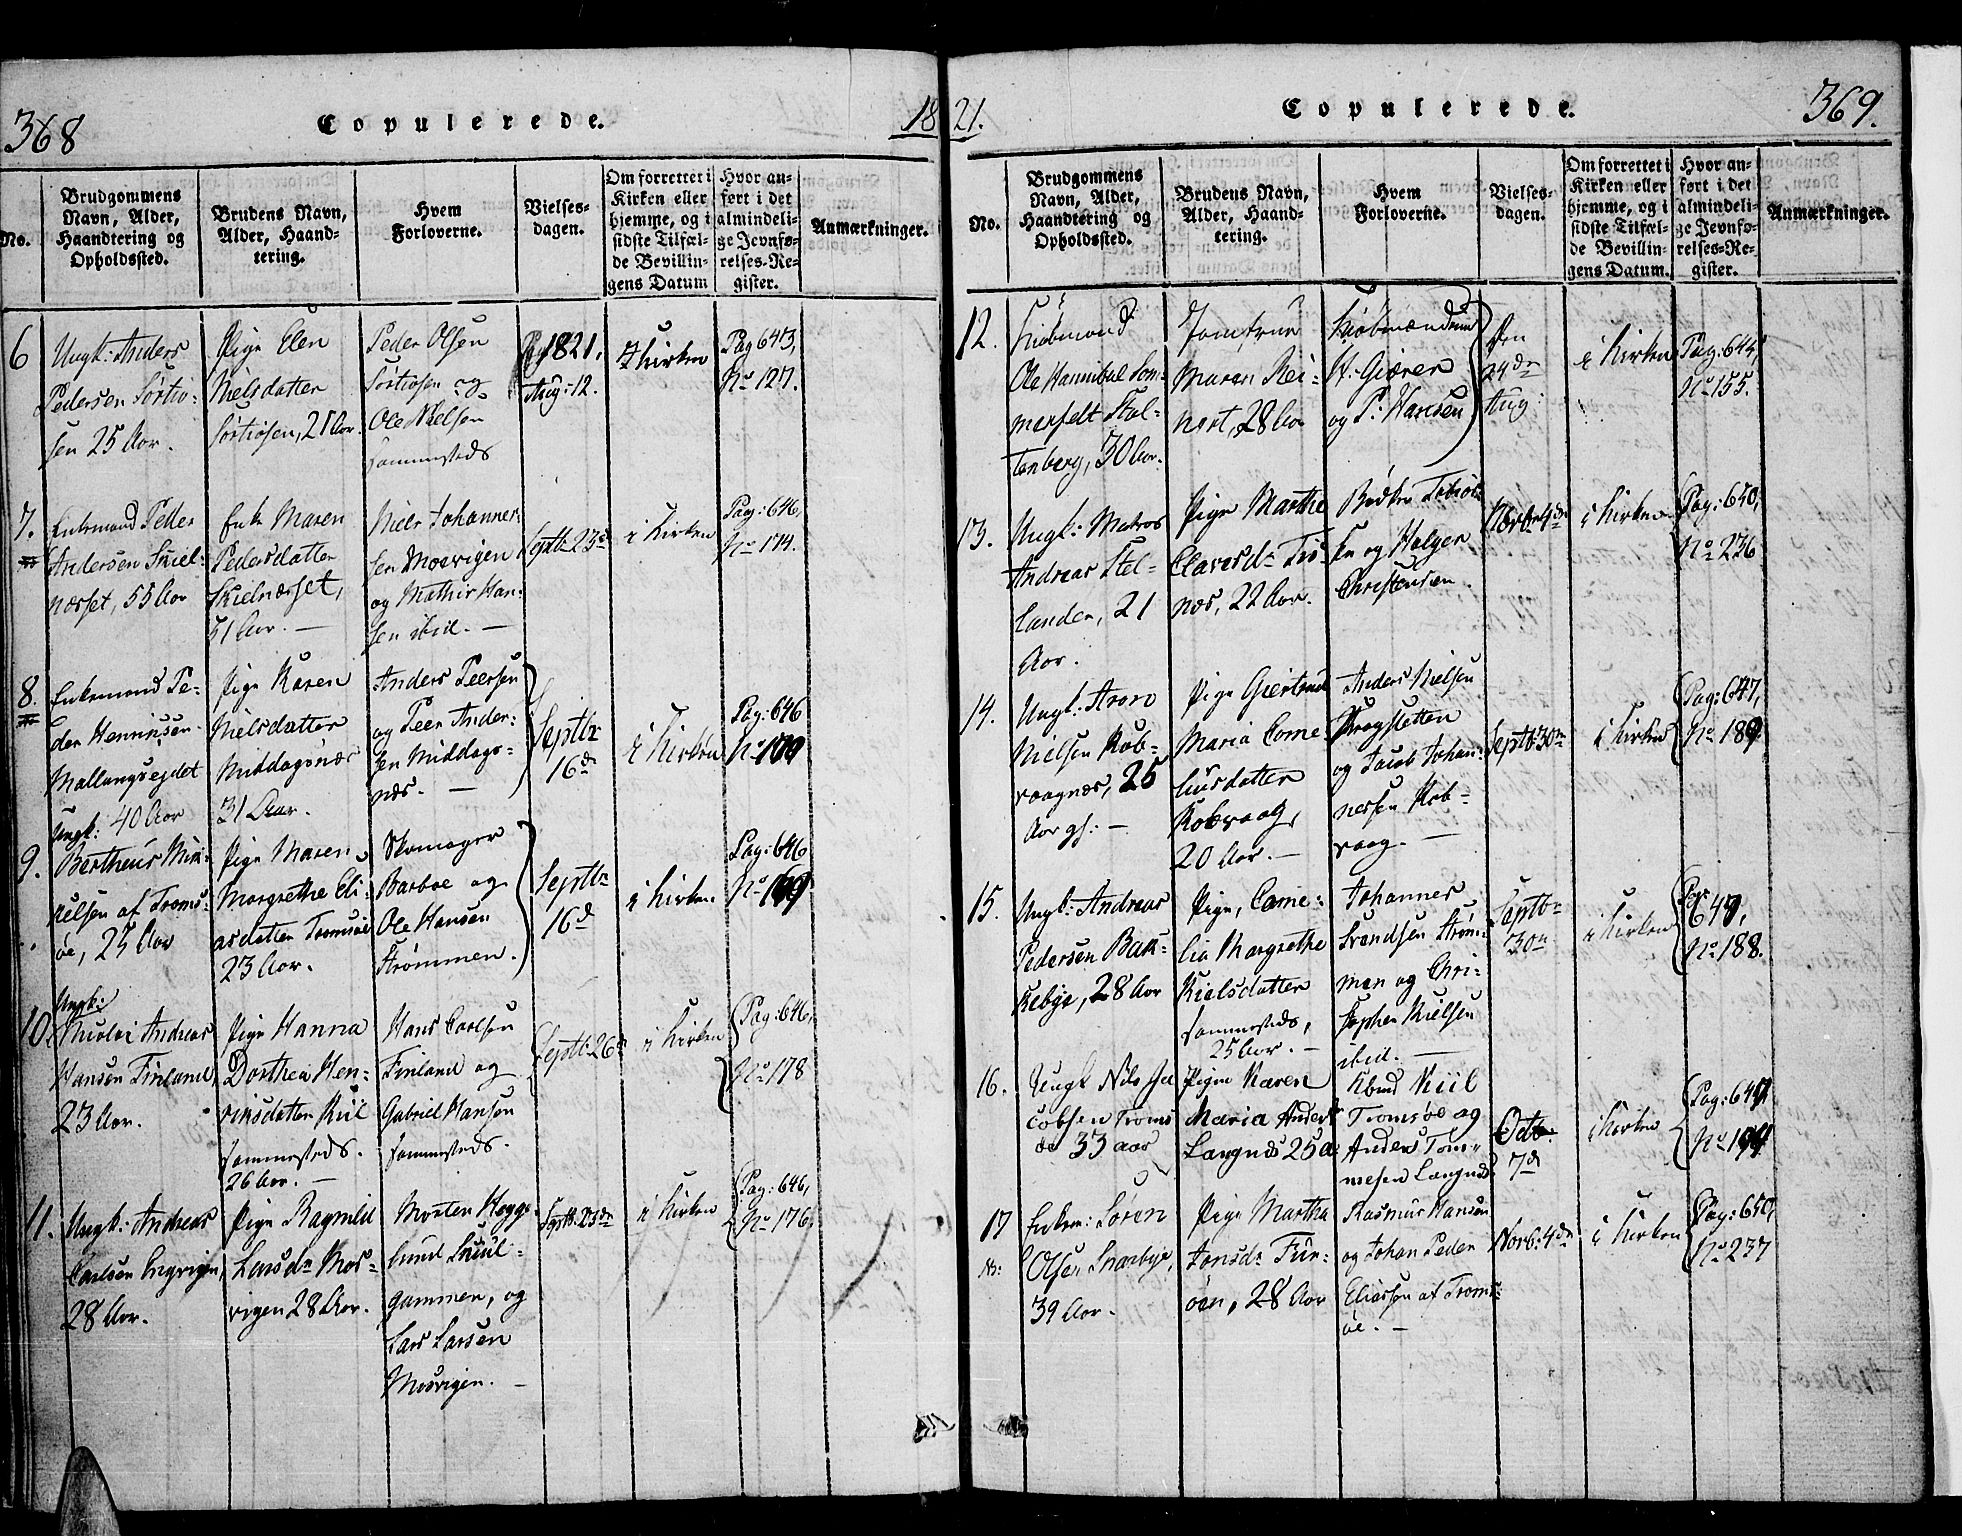 368
Copulerede.
18
No.
Brudgommens
Navn, Alder,
Haandtering og
Opholdssted.
Brudens Navn,
Alder, Haand-
tering.
Hvem
Forloverne.
Vielses-
dagen.
Om forrettet i
Kirken eller
hjemme, og i
sidste Tilfæl-
de Bevillin-
gens Datum
Hvor an-
ført i det
almindeli-
ge Jevnfø-
relses-Re-
gister.
Anmærkninger.
6
Ungk: Anders
Pedersen Sørtiø-
sen 25 Aar.
Pige Elen
Nielsdatter
Sørtiøsen, 21 Aar.
Peder Olsen
Sørtiosen og
Ole Nielsen
sammesteds
1821.
Aug: 12.
I Kirken
Pag 643,
No 127.
7.
Enkemand Peder
Andersen Skiel-
næsset, 55 Aar
Enke Maren
Pedersdatter
Skielnæset,
51 Aar. —
Niels Johannes-
sen Moevigen
og Mathis Han-
sen ibid. —
Septb: 23de
i Kirken
Pag: 646,
No 174.
8.
Enkemand Pe-
der Henningsen
Mallangsejdet
40 Aar
Pige Karen
Nielsdatter
Middagsnæs
31 Aar.
Anders Peersen
og Peer Ander-
sen Middags-
næs. —
Septbr
16de
i Kirken
Pag: 646
No 170
9.
Ungk:
Bertheus Mik-
kelsen af Troms-
øe, 25 Aar
Pige Maren
Margrethe Eli-
asdatter Tromsøe
23 Aar.
Skomager
Barboe og
Ole Hansen
Strømmen.
Septbr
16de
i Kirken
Pag: 646
No 169
10.
Ungk:
Nicolai Andreas
Hansen Finland,
23 Aar.
Pige Hanna
Dorthea Hen-
riksdatter Kiil
sammesteds.
26 Aar. —
Hans Carlsen
Finland og
Gabriel Hansen
sammesteds.
Septb: 26de
i Kirken
Pag: 646,
No 178
11.
Ungk: Andreas
Carlsen
28 Aar.
Pige Ragnild
Larsdr Mos-
vigen 28 Aar.
Morten Hegge-
lund Skul-
gammen, og
Lars Larsen
Mosvigen. —
Septb: 23de
i Kirken
Pag: 646,
No 176.
21.
Copulerede.
369.
No.
Brudgommens
Navn, Alder,
Haandtering og
Opholdssted.
Brudens Navn,
Alder, Haand-
tering.
Hvem
Forloverne.
Vielses-
dagen.
Om forrettet i
Kirken eller
hjemme, og i
sidste Tilfæl-
de Bevillin-
gens Datum.
Hvor an-
ført i det
almindeli-
ge Jevnfø-
relses-Re-
gister.
Anmærkninger.
12.
Kiøbmand
Ole Hannibal Som-
merfelt Stol-
tenberg, 30 Aar.
Jomfrue
Maren Rei-
nert, 28 Aar
Kiøbmændene
H: Giæver
og P: Hansen
Den
24de
Aug:
i Kirken
Pag: 645,
No 155.
13.
Ungk: Matros
Andreas Stel-
lander, 21
Aar.
Pige Marthe
Clavesdr Tis-
næs, 22 Aar.
Bødker
og Holger
Christensen.
Novbr 4de
i Kirken
Pag: 650,
No 236
14.
Ungk: Aron
Nielsen Kob-
vaagnæs, 25
Aar gl: —
Pige Giertrud
Maria Corne-
liusdatter
Kobvaag,
20 Aar. —
Anders Nielsen
Krogsletten
og Jacob Johan-
nessen Kob-
vaag. —
Septb: 30te
i Kirken
Pag: 647,
No 189.
15.
Ungk: Andreas
Pedersen Bak-
kebye, 28 Aar
Pige, Corne-
lia Margrethe
Nielsdatter
sammesteds,
25 Aar. —
Johannes
Svendsen Strøm-
men og Chri-
stopher Nielsen
ibid. —
Septbr
30te
i Kirken
Pag:
647,
No 188.
16.
Ungk Nils Ja
cobsen Troms
øe 33 aar
Pigen Karen
Maria Andersd
Langnæs 25 a
Knud Kiil
Tromsøe og
Anders Tom-
mesen Langnæs
Octb:
7de
i Kirken
Pag: 647
No 194
17
Enkem: Søren
Olsen Snarbye,
39 Aar.
Pige Martha
Jonsdr Fin-
øen, 28 Aar
Rasmus Hansen
og Johan Peder
Eliassen af Troms-
øe. —
Novb: 4de
i Kirken
Pag: 650,
No 237